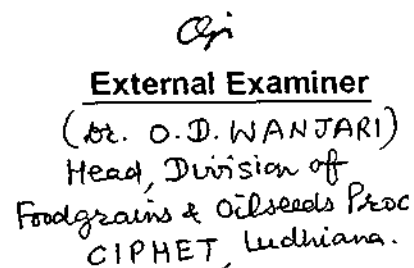 External Examiner
(Dr. O.D. WANJARI)
Head, Division of
Foodgrains & Oilseeds Proc
CIPHET, Ludhiana.